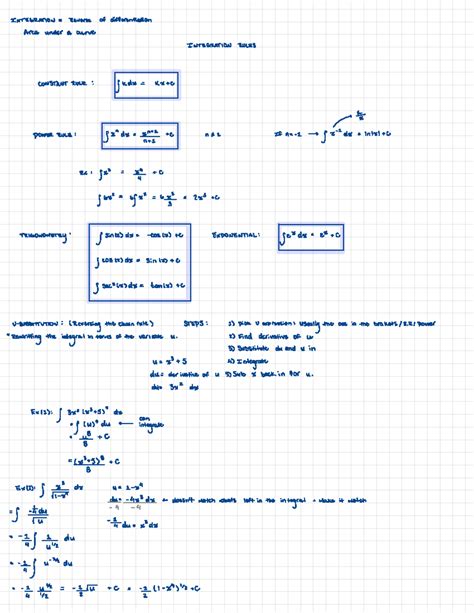 INTEGRATION = reverse of differentiation
Area under a curve
INTEGRATION RULES
CONSTANT RULE : ∫k dx = kx+c
POWER RULE : ∫xⁿ dx = xⁿ⁺¹/n+1 + C
IF n=-1 → ∫x⁻¹ dx = ln|x| + C
Ex : ∫x³ = x⁴/4 + C
= 2x³ + C
TRIGONOMETRY : ∫sin(x) dx = -cos(x) + C
EXPONENTIAL : ∫eˣ dx = eˣ + C
∫cos(x) dx = sin(x) + C
∫sec²(x) dx = tan(x) + C
U-SUBSTITUTION : (Reversing the chain rule)
*Rewriting the integral in terms of the variable u.
STEPS : 1) Pick U expression: Usually the one in the brackets/
2) Find derivative of u
3) Substitute du and u in
4) Integrate
5) Sub x back in for u.
u = x³+5
du = derivative of u
du = 3x² dx
Ex(1): ∫ 3x² (x³+5)⁷ dx
= ∫ (u)⁷ du ← can integrate
= u⁸/8 + C
= (x³+5)⁸/8 + C
Ex(2): ∫ x³/√1-x⁴ dx
u = 1-x⁴
du = -4x³ dx
-4 -4
doesn't match what's left in the integral
make it match
-1/4 du = x³ dx
= ∫ -1/4 du/√u
= -1/4 ∫ 1/u^1/2 du
= -1/4 ∫ u^-1/2 du